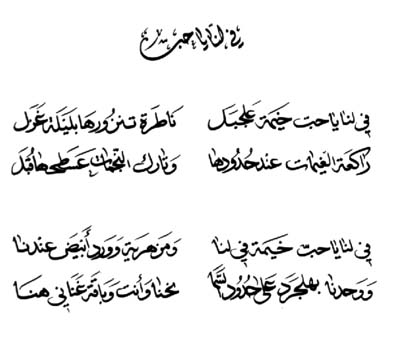 في لنا يا حب
في لنا يا حب خيمة عالجبل ناطرة تنزورها بليلة غزل
راكعة الغيمات عند حدودها وتارك النجمات عسطحها قُبَل
في لنا يا حب خيمة في لنا ومزهرية وورد أبيض عندنا
ووحدنا بهالجرد على حدود السما نحنا وأنت وباقة غناني هنا